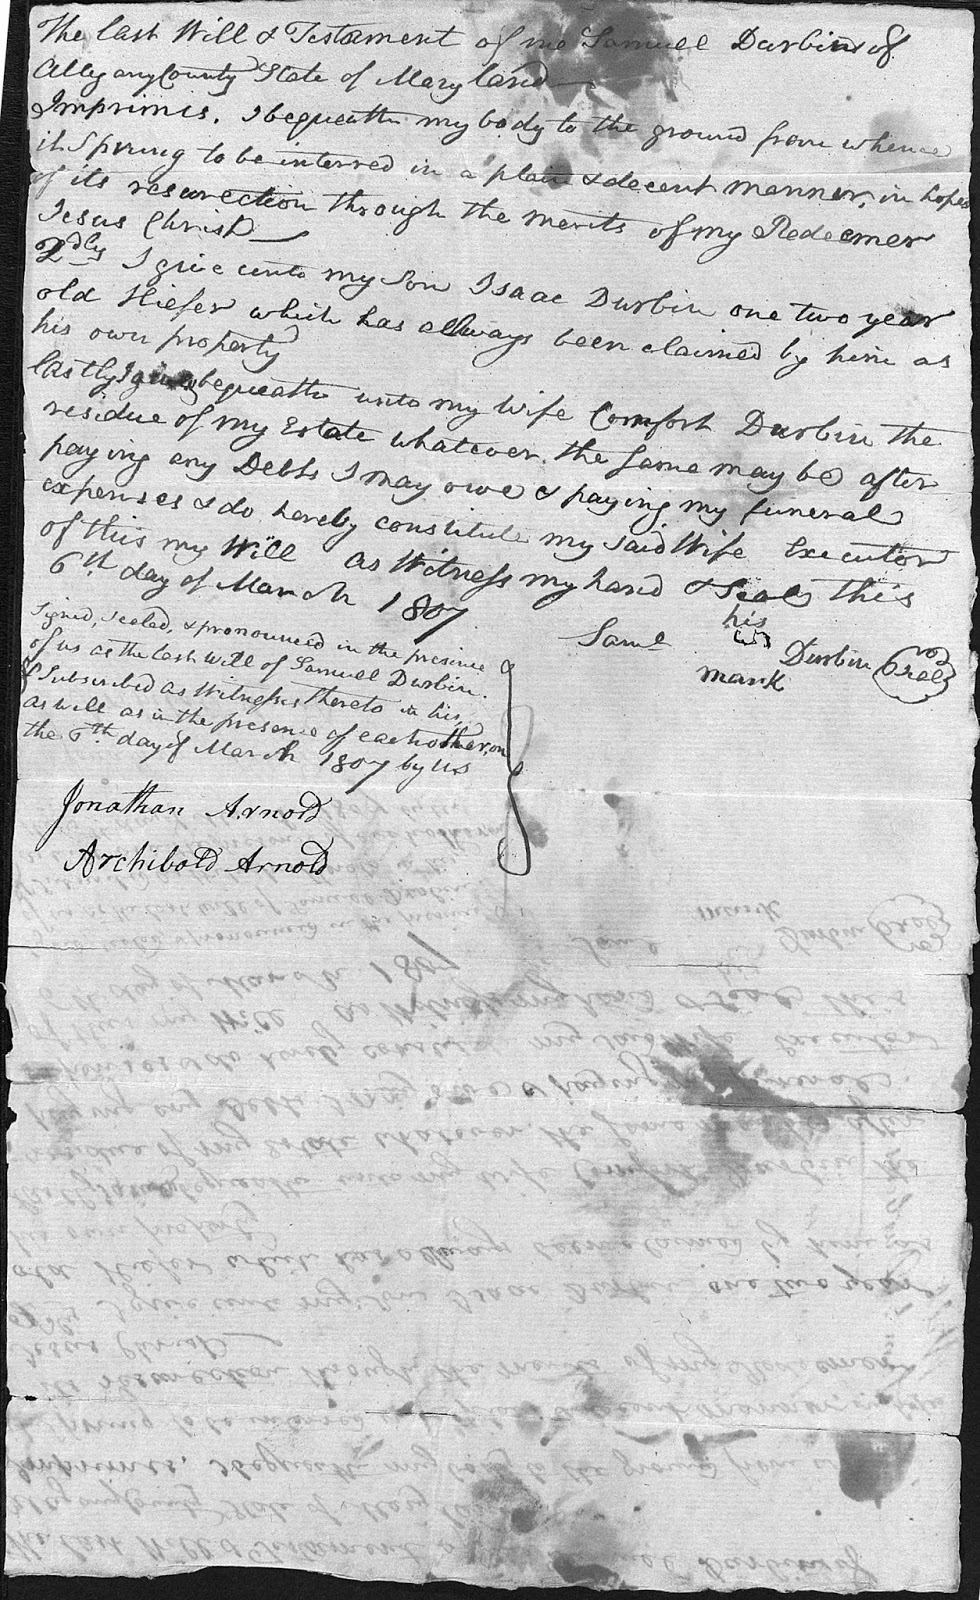 The last Will & Testament of me Samuell Durbin of
Allegany County State of Maryland
Imprimis. I bequeath my body to the ground from whence
it Sprung to be interred in a plain & decent manner, in hopes
of its resurection through the merits of my Redeemer
Jesus Christ
2dly I give unto my Son Isaac Durbin one two year
old Hiefer which has allways been claimed by him as
his own property
lastly I give & bequeath unto my Wife Comfort Durbin the
residue of my Estate whatever the same may be after
paying any Debts I may owe & paying my funeral
expenses & do hereby constitute my said Wife Executor
of this my Will as Witness my hand & Seal this
6th day of March 1807
his
Saml Durbin Seal
mark
Signed, sealed, & pronounced in the presence
of us as the last will of Samuell Durbin.
& Subscribed as Witnesses thereto in his,
as well as in the presence of each other, on
the 6th day of March 1807 by Us
Jonathan Arnold
Archibold Arnold